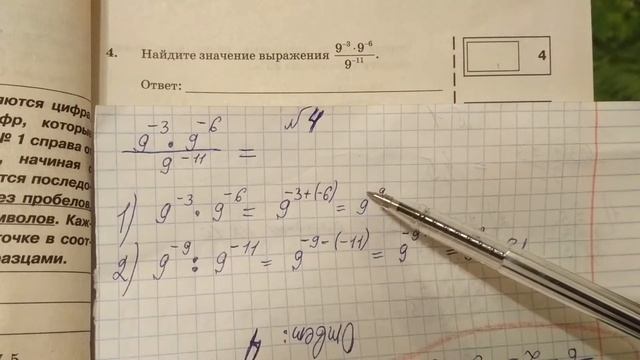 4. Найдите значение выражения 9⁻³·9⁻⁶/9⁻¹¹.
4
Ответ:
ются цифра
фр, которы
№ 1 справа от
, начиная с
тся последо-
ез пробелов,
мволов. Каж-
точке в соот-
разцами.
№ 4
9⁻³·9⁻⁶/9⁻¹¹ =
1) 9⁻³ · 9⁻⁶ = 9⁻³⁺⁽⁻⁶⁾ = 9
2) 9⁻⁹ : 9⁻¹¹ = 9⁻⁹⁻⁽⁻¹¹⁾ = 9⁻⁹
Ответ: